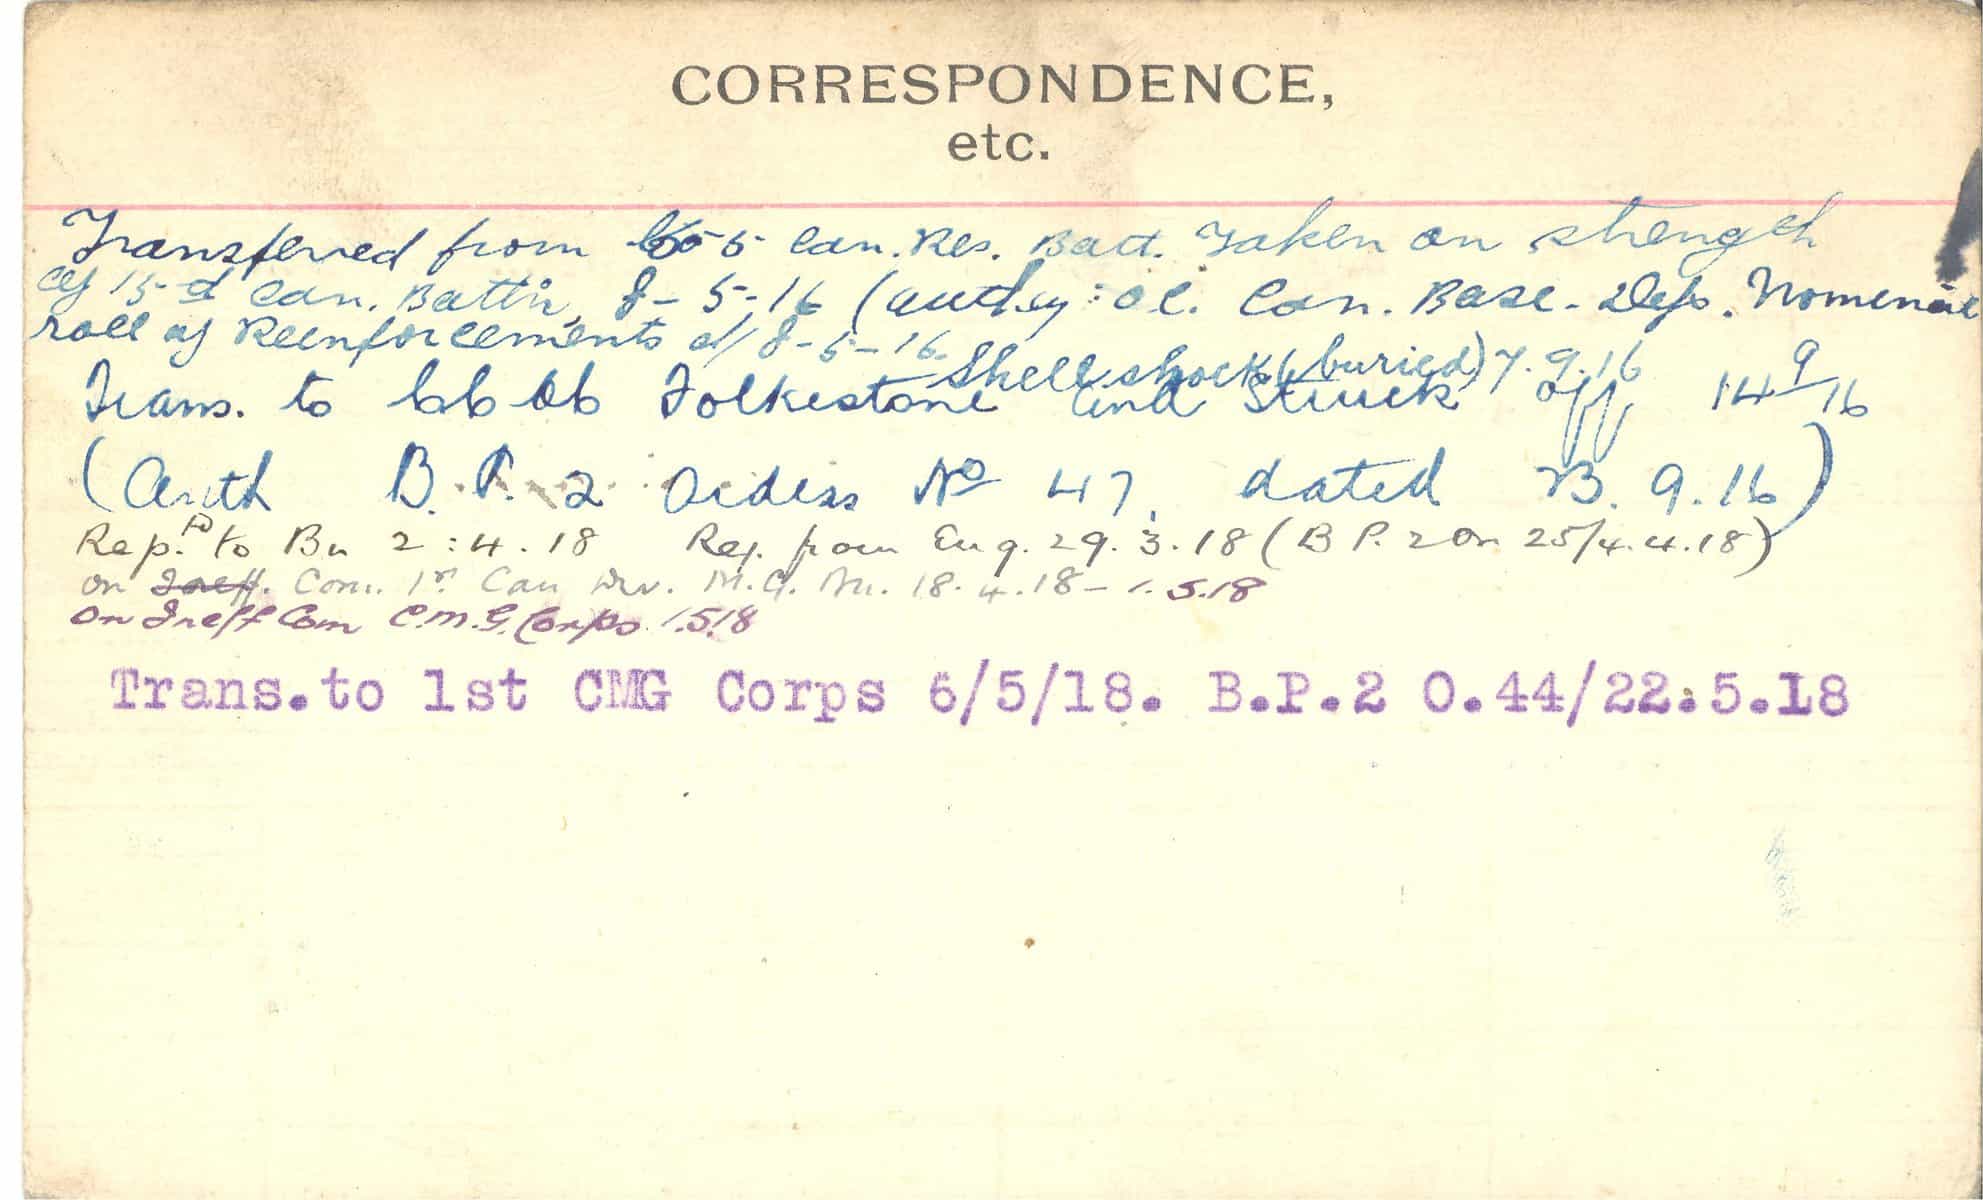 CORRESPONDENCE,
etc.
Transferred from 55 Can. Res. Batt. Taken on strength
of 15th Can. Batt'n, 8-5-16 (authy: O.C. Can. Base. Dep. Nominal
roll of Reinforcements d/ 8-5-16.
Shell shock (buried) 7.9.16
Trans. to Folkestone and struck off 14 9/16
(Auth B.P. 2 Orders No 47, dated 23.9.16)
Rep.d to Bn 2:4.18 Rej. from Eng. 29.3.18 (B P. 2 On 25/4.4.18)
on Com. 1st Can Div. M.G. Bn. 18.4.18 - 1.5.18
On Com C.M.G. Corps 1.5.18
Trans.to 1st CMG Corps 6/5/18. B.P.2 O.44/22.5.18